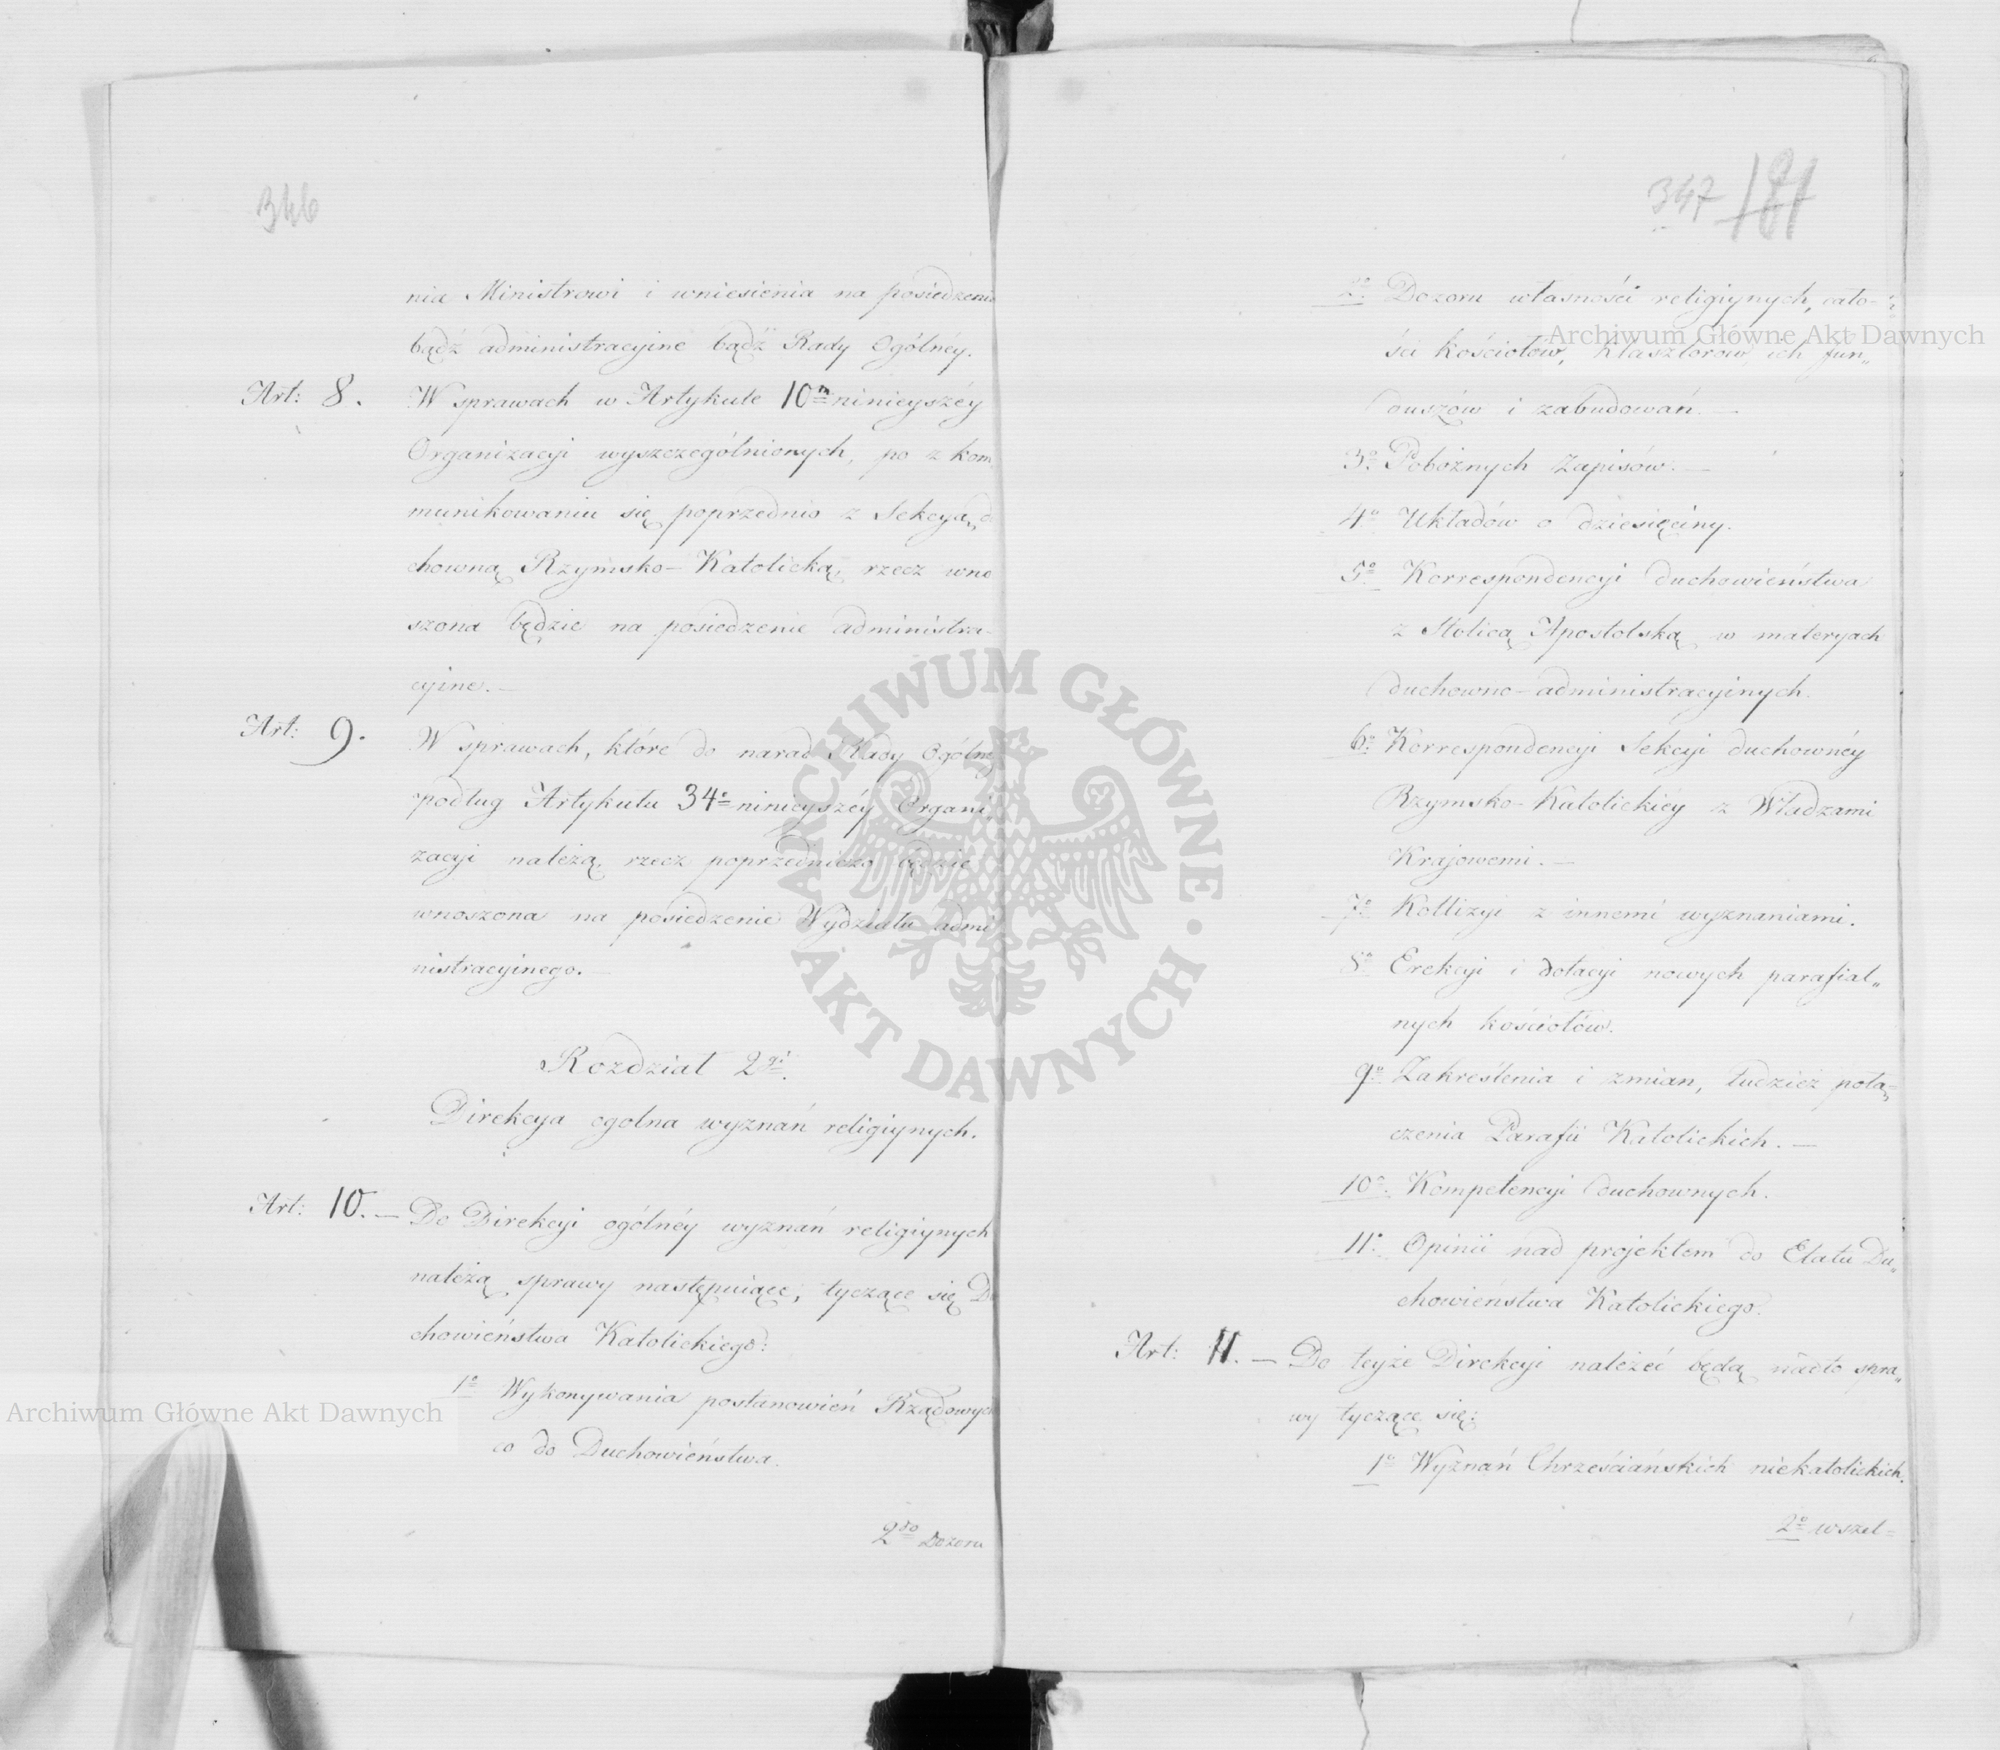 346
nia Ministrowi i wniesienia na posiedzenia
bądź administracyine bądź Rady Ogólnéy.
Art: 8. W sprawach w Artykule 10m ninieyszéy
Organizacyi wyszczególnionych, po zkom
munikowaniu się poprzednio z Sekcyą
chowną Rzymsko-Katolicką, rzecz wno
szona będzie na posiedzenie administra-
cyine. —
Art: 9. W sprawach, które do narad Rady Ogólnéy
podług Artykułu 34o ninieyszéy Organi
zacyi należą, rzecz poprzedniczo będzie
wnoszona na posiedzenie Wydziału admi
nistracyinego. —
Rozdział 2gi.
Direkcya ogolna wyznań religiynych.
Art: 10. — Do Direkcyi ogólnéy wyznań religiynych
należą sprawy następuiące, tyczące się Du
chowieństwa Katolickiego:
1o Wykonywania postanowień Rządowych
co do Duchowieństwa.
2do Dozoru
347 181
2o Dozoru własności religiynych, cało-
ści kościołów, klasztorów, ich fun„
duszów i zabudowań. —
3o Pobożnych Zapisów. —
4o Układów o dziesięciny.
5o Korrespondencyi duchowieństwa
z Stolicą Apostolską w materyach
duchowno-administracyinych.
6o Korrespondencyi Sekcyi duchownéy
Rzymsko-Katolickiéy z Władzami
Krajowemi. —
7o Kollizyi z innemi wyznaniami.
8o Erekcyi i dotacyi nowych parafial„
nych kościołów.
9o Zakreślenia i zmian, tudzież połą„
czenia Parafii Katolickich. —
10o. Kompetencyi duchownych.
11o. Opinii nad projektem do Etatu Du„
chowieństwa Katolickiego.
Art: 11. — Do teyże Direkcyi należeć będą nadto spra„
wy tyczące się:
1o Wyznań Chrześciańskich niekatolickich.
2o wszel=
Archiwum Główne Akt Dawnych
Archiwum Główne Akt Dawnych
ARCHIWUM GŁÓWNE · AKT DAWNYCH ·